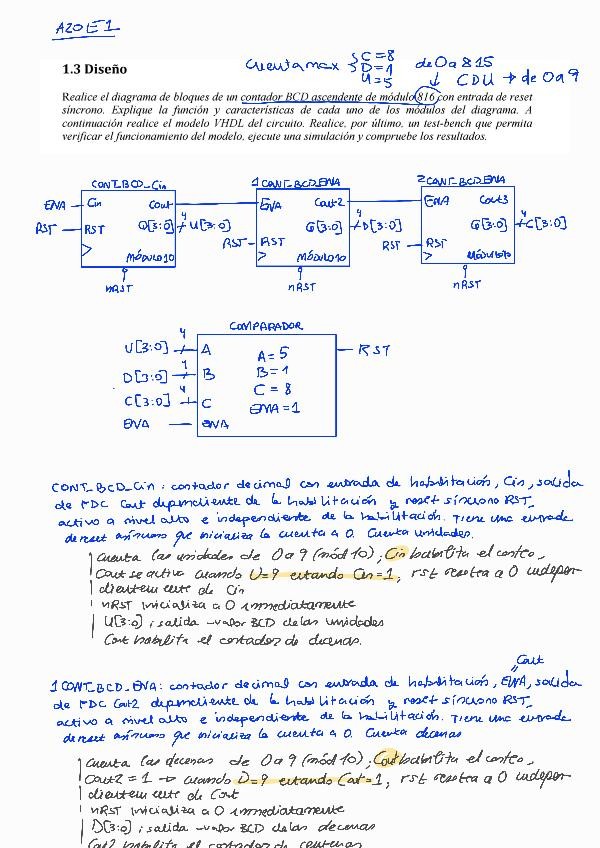 A20 E1
1.3 Diseño
cuenta max { C=8 D=1 U=5 de 0 a 815
↓ CDU → de 0 a 9
Realice el diagrama de bloques de un contador BCD ascendente de módulo 816 con entrada de reset
síncrono. Explique la función y características de cada uno de los módulos del diagrama. A
continuación realice el modelo VHDL del circuito. Realice, por último, un test-bench que permita
verificar el funcionamiento del modelo, ejecute una simulación y compruebe los resultados.
CONT_BCD_Cin 1 CONT_BCD_ENA 2 CONT_BCD_ENA
ENA Cin Cout ENA Cout2 ENA Cout3
RST RST Q[3:0] 4 U[3:0] RST RST Q[3:0] 4 D[3:0] RST RST Q[3:0] 4 C[3:0]
MÓDULO 10 MÓDULO 10 MÓDULO 10
nRST nRST nRST
COMPARADOR
U[3:0] 4 A A=5 RST
D[3:0] 4 B B=1
C[3:0] 4 C C=8
ENA ENA ENA=1
CONT_BCD_Cin : contador decimal con entrada de habilitación, Cin, salida
de FDC Cout dependiente de la habilitación y reset síncrono RST,
activo a nivel alto e independiente de la habilitación. Tiene una entrada
de reset asíncrono que inicializa la cuenta a 0. Cuenta unidades.
Cuenta las unidades de 0 a 9 (mód 10), Cin habilita el conteo,
Cout se activa cuando U=9 estando Cin=1, rst resetea a 0 indepen-
dientemente de Cin
nRST inicializa a 0 inmediatamente
U[3:0] : salida - valor BCD de las unidades
Cout habilita el contador de decenas.
Cout
1 CONT_BCD_ENA: contador decimal con entrada de habilitación, ENA, salida
de FDC Cout2 dependiente de la habilitación y reset síncrono RST,
activo a nivel alto e independiente de la habilitación. Tiene una entrada
de reset asíncrono que inicializa la cuenta a 0. Cuenta decenas
Cuenta las decenas de 0 a 9 (mód 10), Cout habilita el conteo,
Cout2 = 1 → cuando D=9 estando Cout=1, rst resetea a 0 indepen-
dientemente de Cout
nRST inicializa a 0 inmediatamente
D[3:0] : salida - valor BCD de las decenas
Cout2 habilita el contador de centenas